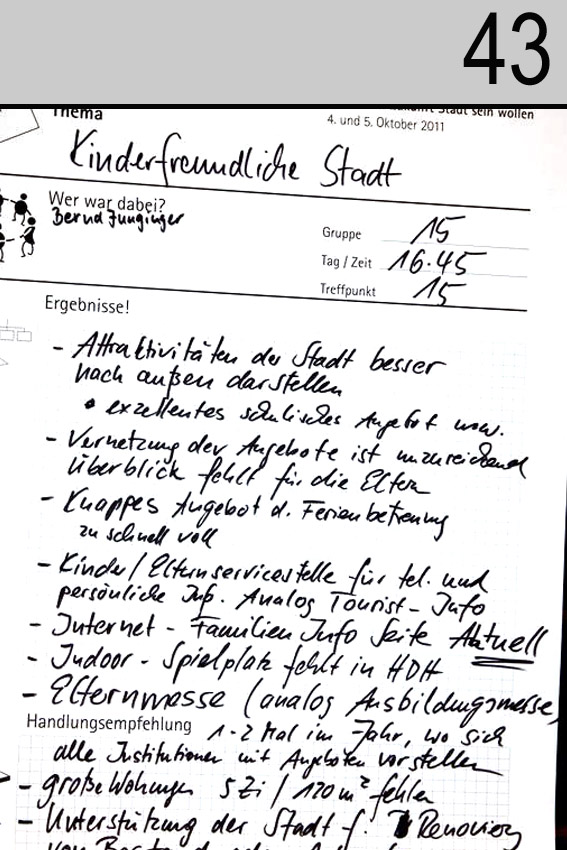 43
Thema
Stadt sein wollen
4. und 5. Oktober 2011
Kinderfreundliche Stadt
Wer war dabei?
Bernd Junginger
Gruppe 15
Tag / Zeit 16.45
Treffpunkt 15
Ergebnisse!
- Attraktivitäten der Stadt besser
nach außen darstellen
• exzellentes schulisches Angebot usw.
- Vernetzung der Angebote ist unzureichend
Überblick fehlt für die Eltern
- Knappes Angebot d. Ferienbetreuung
zu schnell voll
- Kinder/Elternservicestelle für tel. und
persönliche Inf. Analog Tourist-Info
- Internet - Familien Info Seite Aktuell
- Indoor-Spielplatz fehlt in HDH
- Elternmesse (analog Ausbildungsmesse,
Handlungsempfehlung 1-2 Mal im Jahr, wo sich
alle Institutionen mit Angeboten vorstellen
- große Wohungen 5 Zi / 120 m² fehlen
- Unterstützung der Stadt f. Renovierg
von